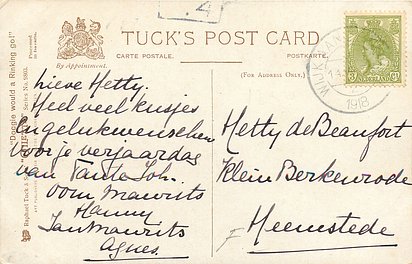 .4
TUCK'S POST CARD
CARTE POSTALE.
POSTKARTE.
By Appointment.
(FOR ADDRESS ONLY.)
WIJK
1918
NEDERLAND
"Froggie would a Rinking go!"
Raphael Tuck &
Lieve Hetty.
Heel veel kusjes
en gelukwenschen
voor je verjaardag
van Tante Joh.
oom Maurits
Hanny
Jan Maurits
Agnes.
Hetty de Beaufort
Klein Berkenrode
Heemstede